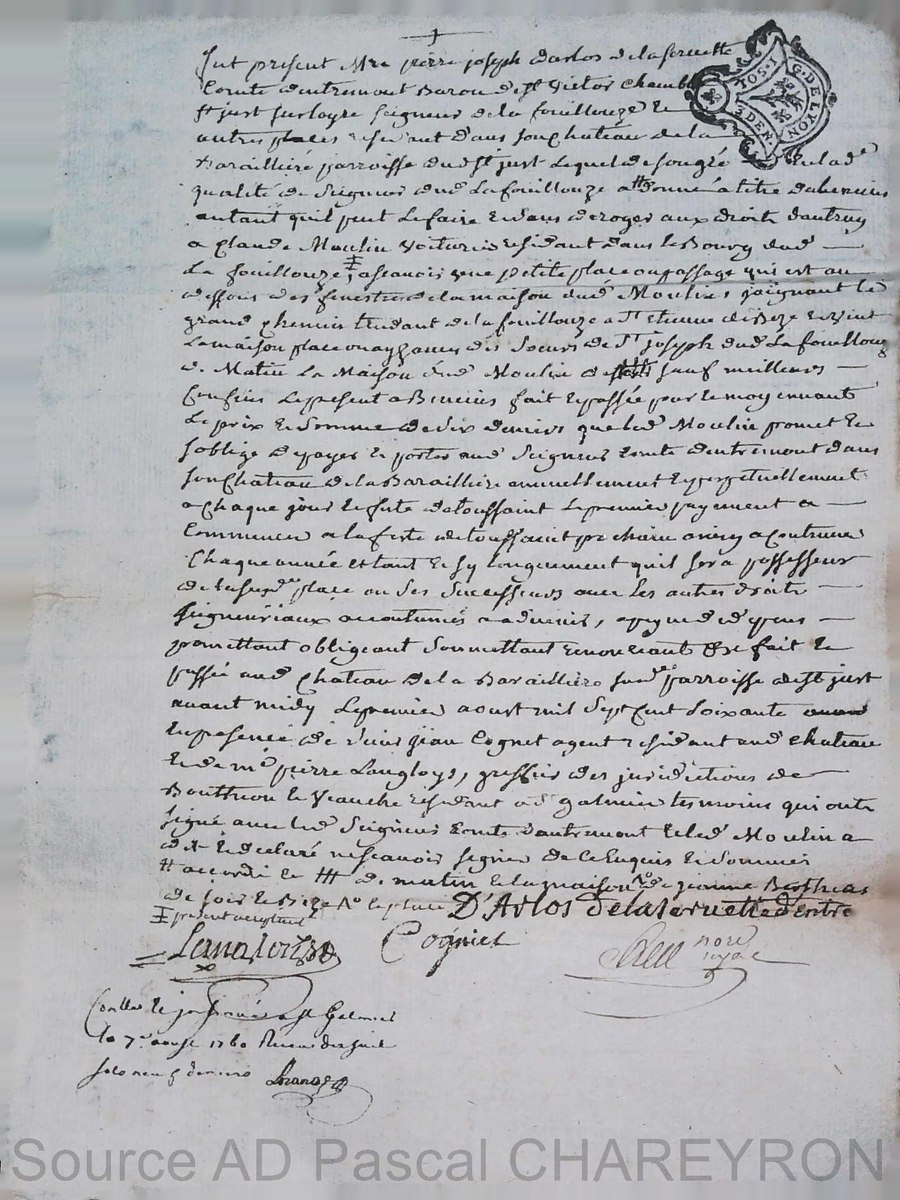 fut present Mre pierre joseph darlos de la servette
Comte dentremont Baron de St Victor Chambl
St just sur loyre Seigneur de la fouillouze &
autres places residant dans son Chateau de la
Baraillière parroisse dud St just Lequel de son gré en lade
qualité de Seigneur dud La fouillouze a donné à titre dabenevis
autant quil peut Le faire & sans deroger aux droits dautruy
a Claude Moulin Voiturier residant dans le Bourg dud
La fouillouze ascavoir une petite place ou passage qui est au
dessous des fenestres de la maison dud Moulin, joignant le
grand Chemin tendant de la fouillouze a St Etienne de Bize & Vent
La maison place ou aysances des Soeurs de St joseph dud La fouillouze
de Matin La Maison dud Moulin de sauf meilleurs
Confins Le present abenevis fait & passé par & moyennant
Le prix & somme de Six deniers que led Moulin promet &
soblige de payer & porter aud Seigneur Comte dentremont dans
son Chateau de la Baraillière annuellement & perpetuellement
a Chaque jour & feste de toussaint Le premier payement a
Commencer a la feste de toussaint prochaine ainsy a Continuer
Chaque année et tant & sy longuement quil sera possesseur
de la susde place ou ses Successeurs avec les autres droits
Seigneuriaux accoutumés
promettant obligeant Soumettant & renonceant &c fait &
passé aud Chateau de la Baraillière susde parroisse de St just
avant midy Le premier aoust mil Sept Cent Soixante
En presence de Sieur jean Cognet agent residant aud Chateau
& de me pierre Langloys, greffier des juridictions de
Boutheon & Veauche residant a St galmier temoins qui ont
signé avec led Seigneur Comte dentremont & led Moulin a
dit & déclaré ne scavoir signer de Ce Enquis & sommé
accordé de matin & la maison de jeanne Berthéas
de soir & Bize la place D'Arlos de la Servette d'entre
present acceptant
Cogniet
nore
royal
Conllé & St Galmier
le 7e aoust 1760 Receu dix huit
sols neuf deniers
TOS. 1
3 DEN.
G. DE LYON
Source AD Pascal CHAREYRON